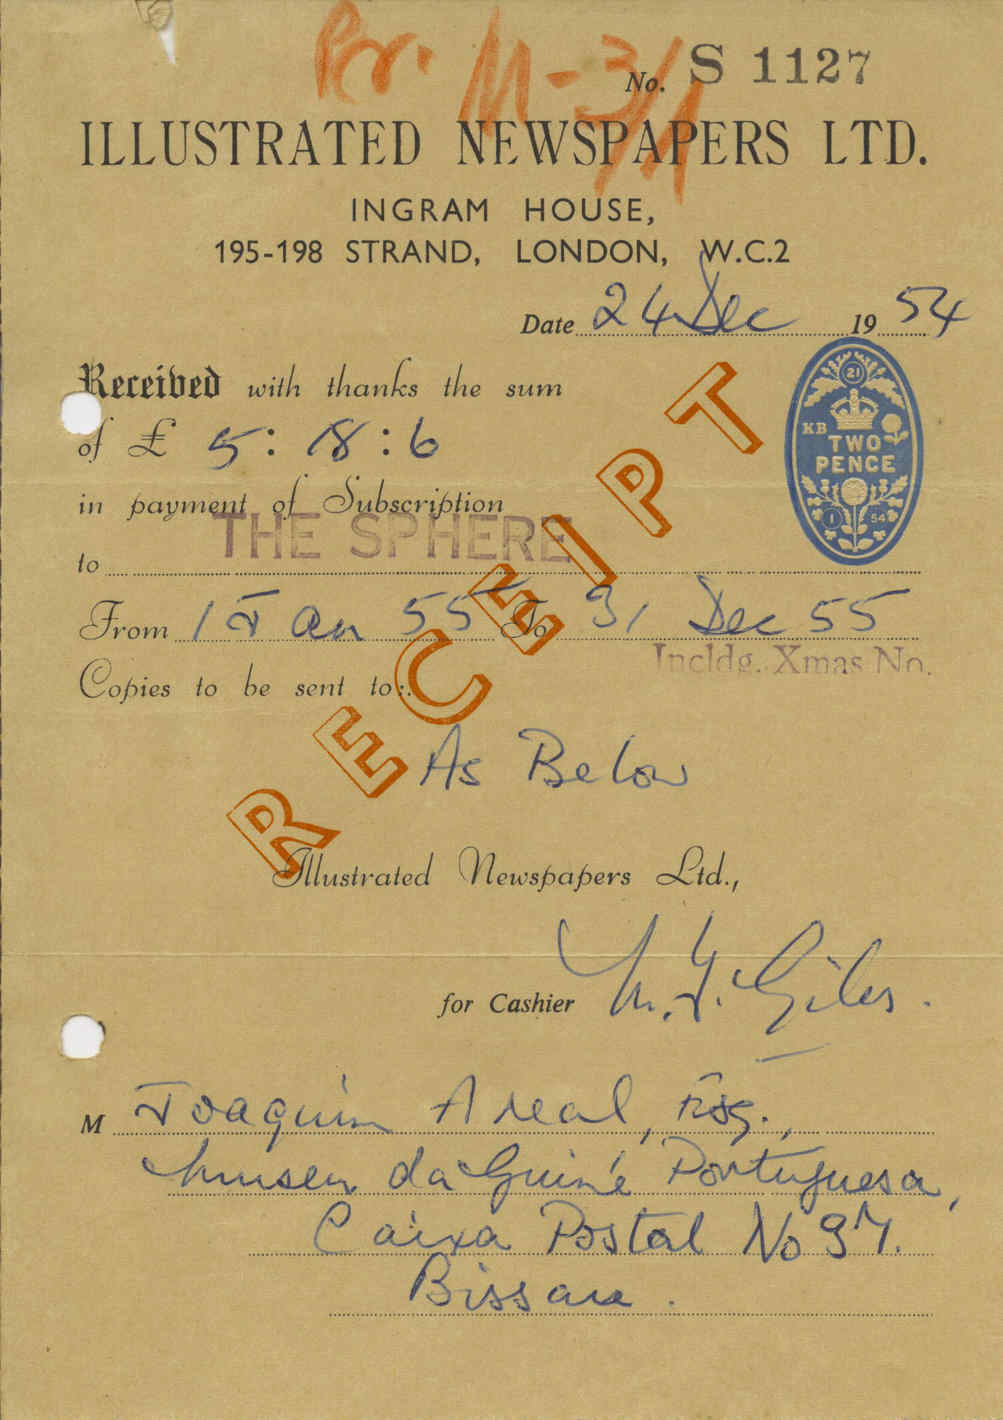 Rcr. M-3/1
No. S 1127
ILLUSTRATED NEWSPAPERS LTD.
INGRAM HOUSE,
195-198 STRAND, LONDON, W.C.2
Date 24 Dec 1954
Received with thanks the sum
of £ 5: 18: 6
21
KB
TWO
PENCE
1 54
in payment of Subscription
to THE SPHERE
From 1 Jan 55 To 31 Dec 55
Incldg. Xmas No.
Copies to be sent to:.
RECEIPT
As Below
Illustrated Newspapers Ltd.,
for Cashier M. J. Giles.
M Joaquim Areal, Esq.,
Museu da Guiné Portuguesa,
Caixa Postal No 37.
Bissau.